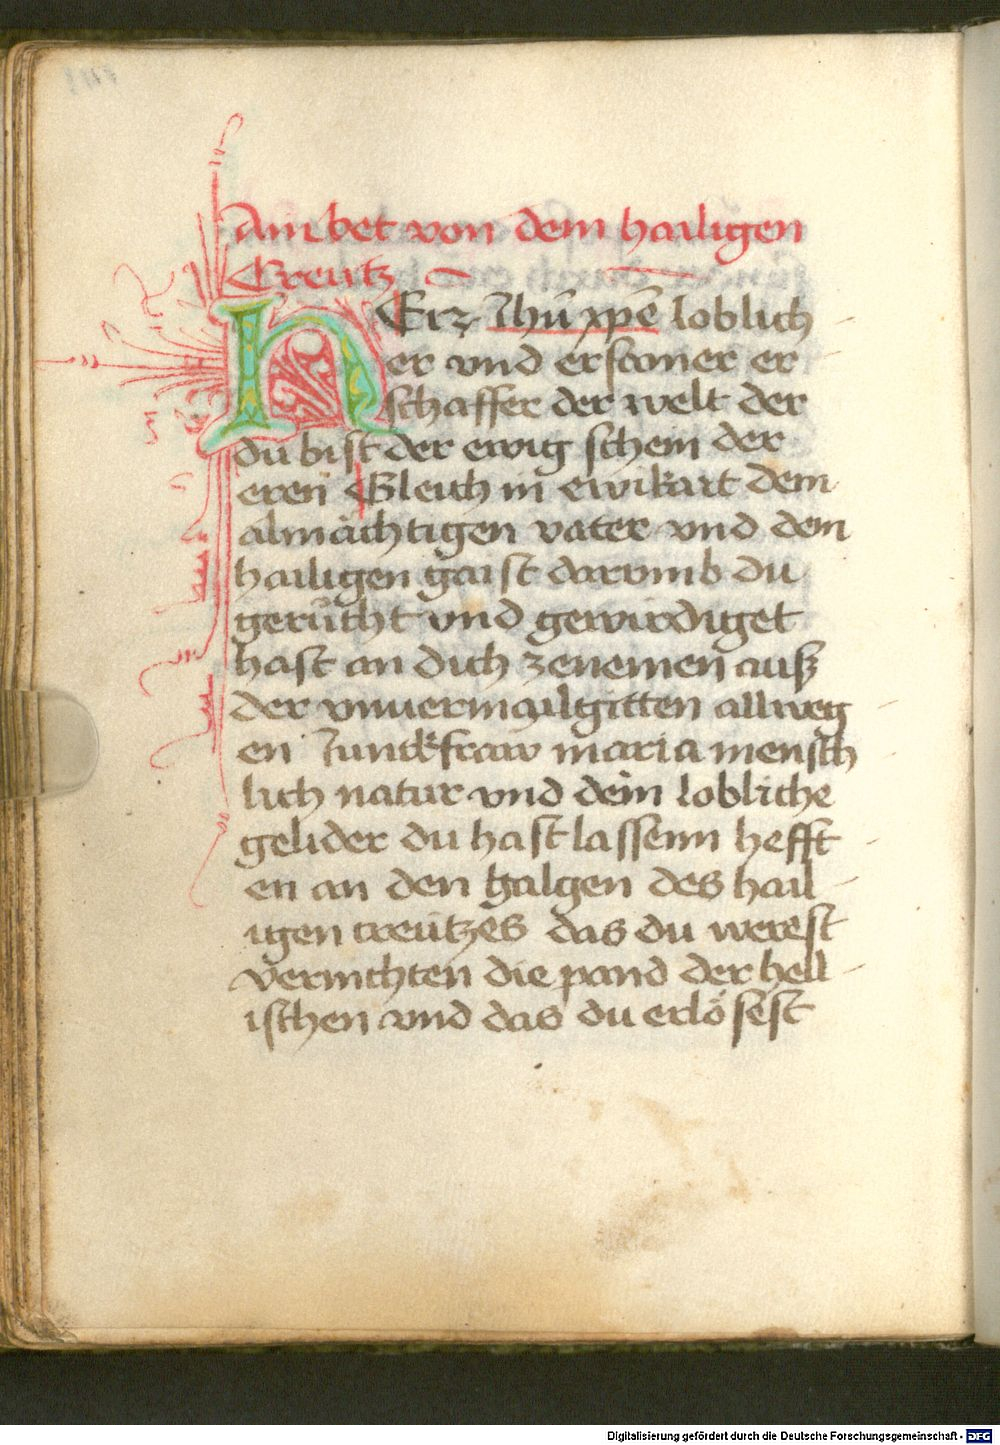 Ain bet von dem hailigen
Creutz
HErz Jhũ xp̃e loblich
er vnd ersamer er
schaffer der welt der
du bist der ewig schein der
eren Gleich in ewikait dem
almächtigen vater vnd dem
hailigen gaist darvmb du
gerůcht vnd gewirdiget
hast an dich zenemen ausz
der vnuermailgitten allweg
en Junckfraw maria mensch
lich natur vnd dein lobliche
gelider du hast lassenn hefft
en an den galgen des hail
igen creützes das du werest
vernichten die pand der hell
ischen vnd das du erlösest
Digitalisierung gefördert durch die Deutsche Forschungsgemeinschaft - DFG